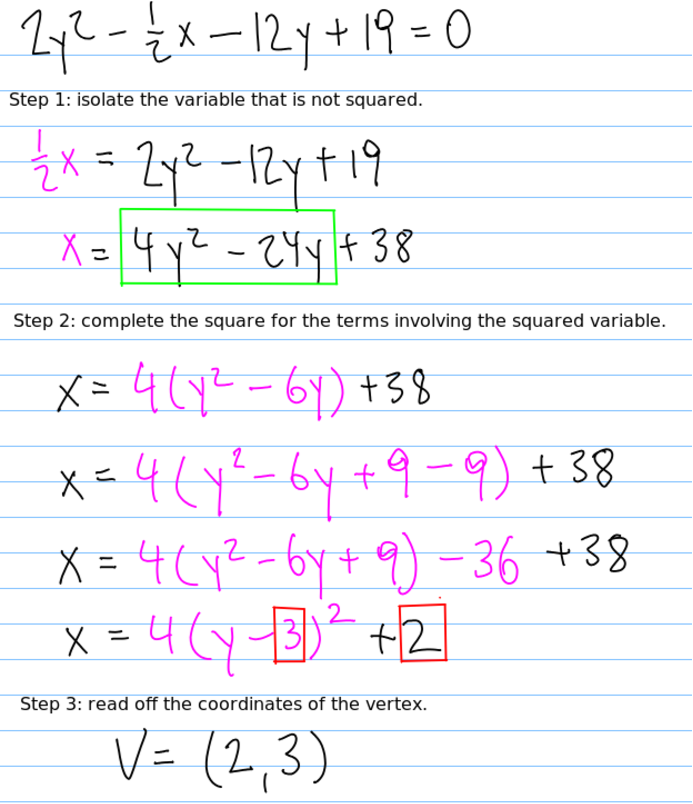 2y² - 1/2 x - 12y + 19 = 0
Step 1: isolate the variable that is not squared.
1/2 x = 2y² - 12y + 19
x = 4y² - 24y + 38
Step 2: complete the square for the terms involving the squared variable.
x = 4(y² - 6y) + 38
x = 4(y² - 6y + 9 - 9) + 38
x = 4(y² - 6y + 9) - 36 + 38
x = 4(y - 3)² + 2
Step 3: read off the coordinates of the vertex.
V = (2, 3)